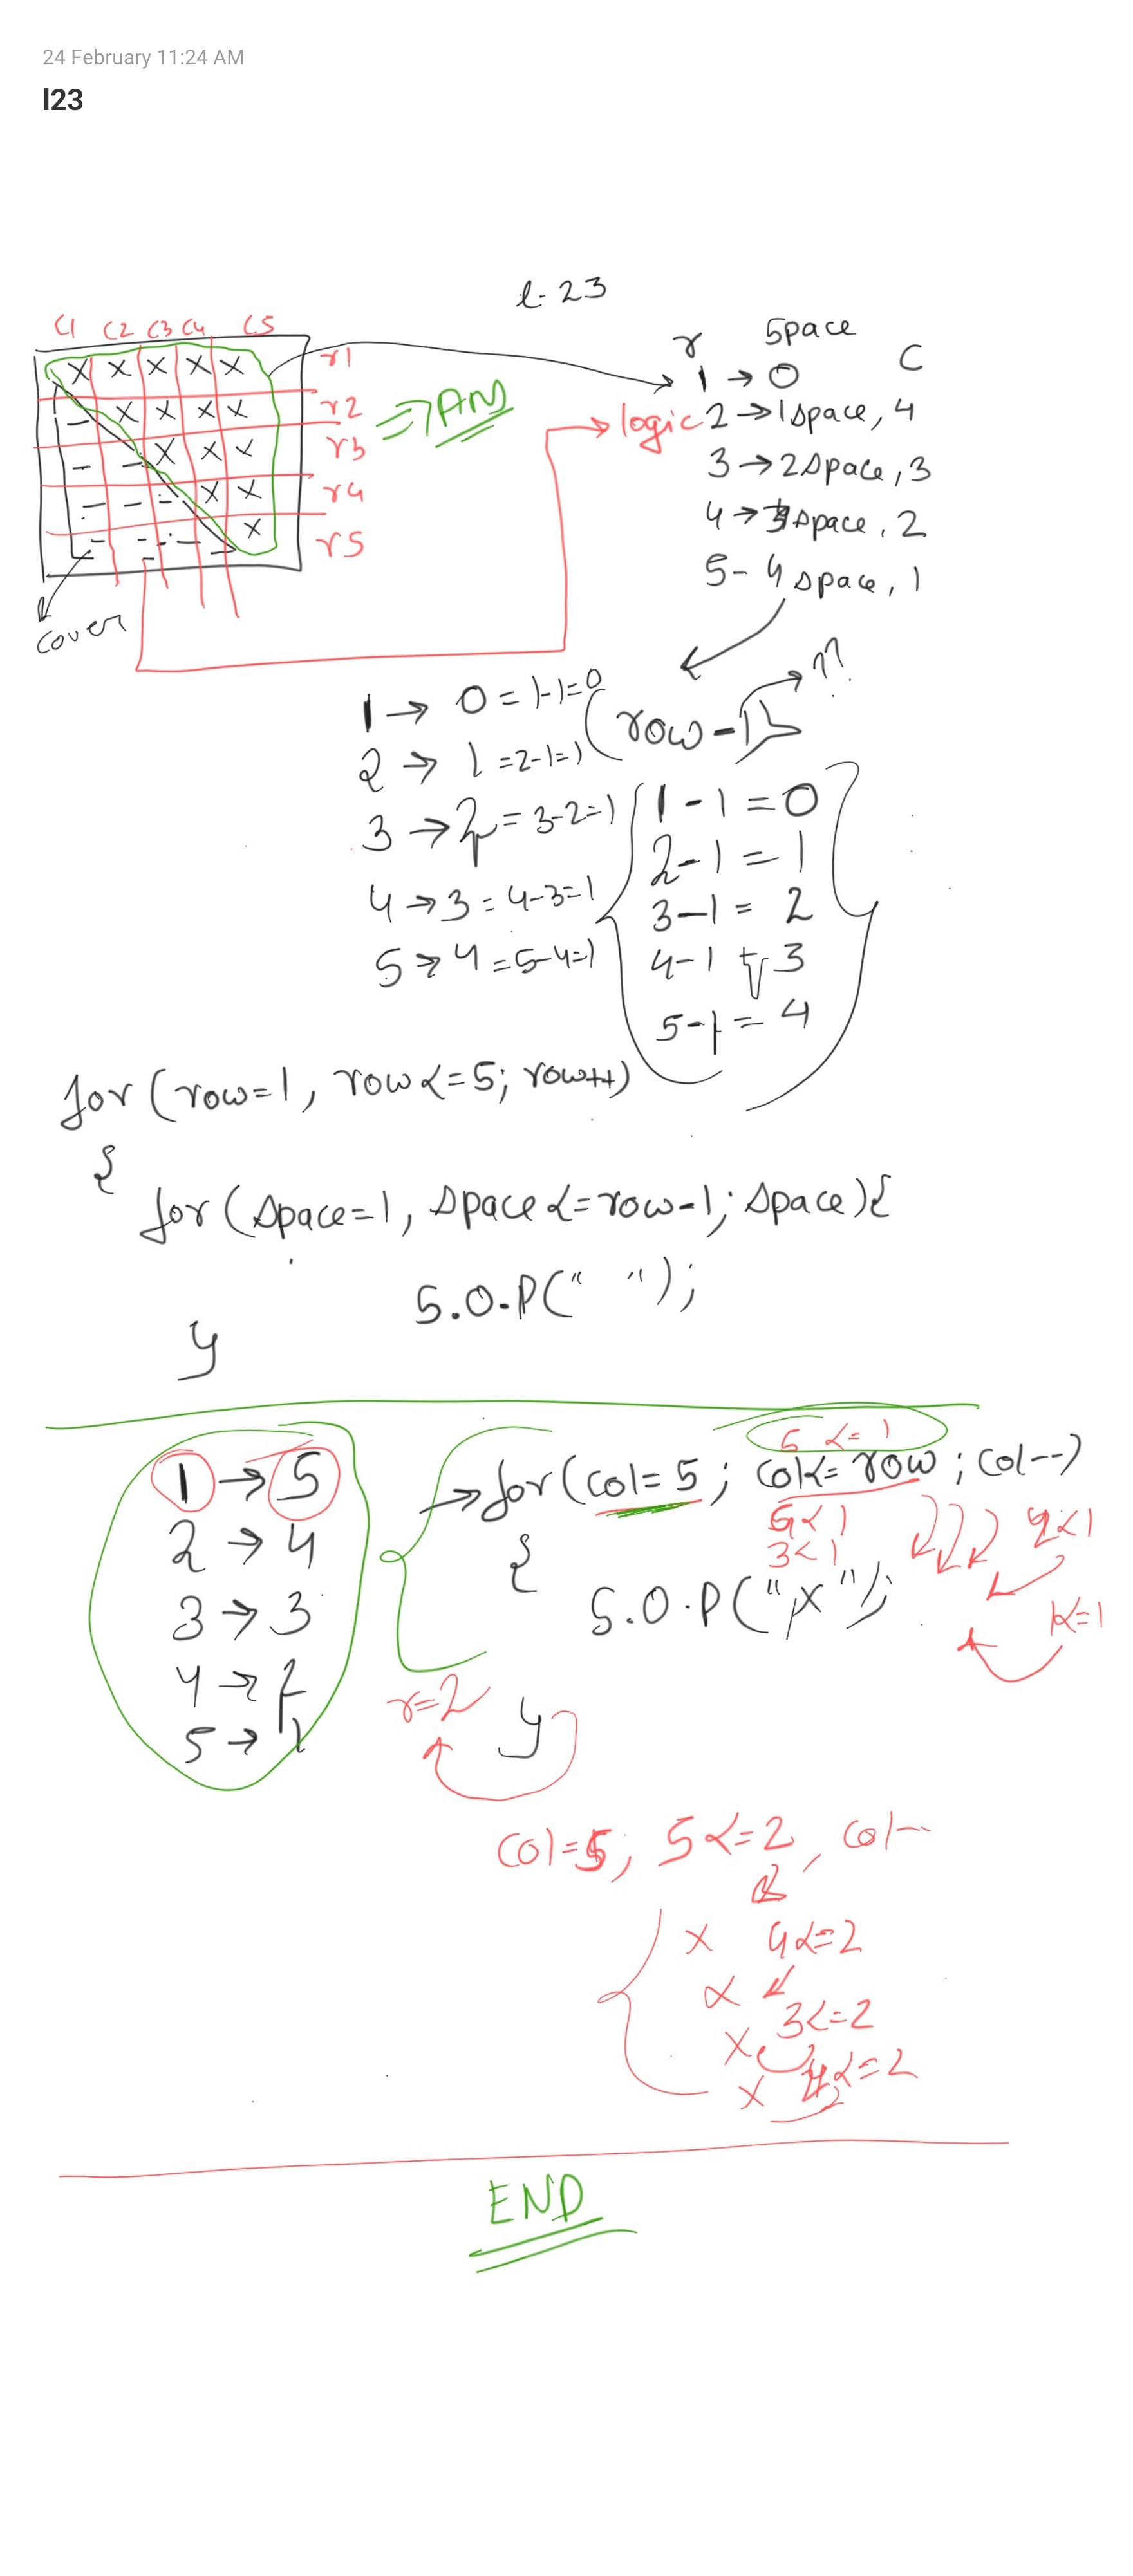 24 February 11:24 AM
l23
l-23
C1 C2 C3 C4 C5
x x x x x r1
- x x x x r2
- - x x x r3
- - - x x r4
- - - - x r5
=> Ans
cover
r Space C
1 → 0
logic 2 → 1 space, 4
3 → 2 space, 3
4 → 3 space, 2
5 - 4 space, 1
(row-1) → ??
1 → 0 = 1-1=0
2 → 1 = 2-1=1
3 → 2 = 3-2=1
4 → 3 = 4-3=1
5 → 4 = 5-4=1
1 - 1 = 0
2 - 1 = 1
3 - 1 = 2
4 - 1 = 3
5 - 1 = 4
for (row=1, row<=5; row++)
{
for (space=1, space<=row-1; space){
S.O.P(" ");
}
1 → 5
2 → 4
3 → 3
4 → 2
5 → 1
5 <= 1
→ for (col=5; col<=row; col--)
5<1 2<1
3<1
{
S.O.P("x");
1<=1
r=2
}
col=5; 5<=2, col--
x 4<=2
x
3<=2
x
x 2<=2
END